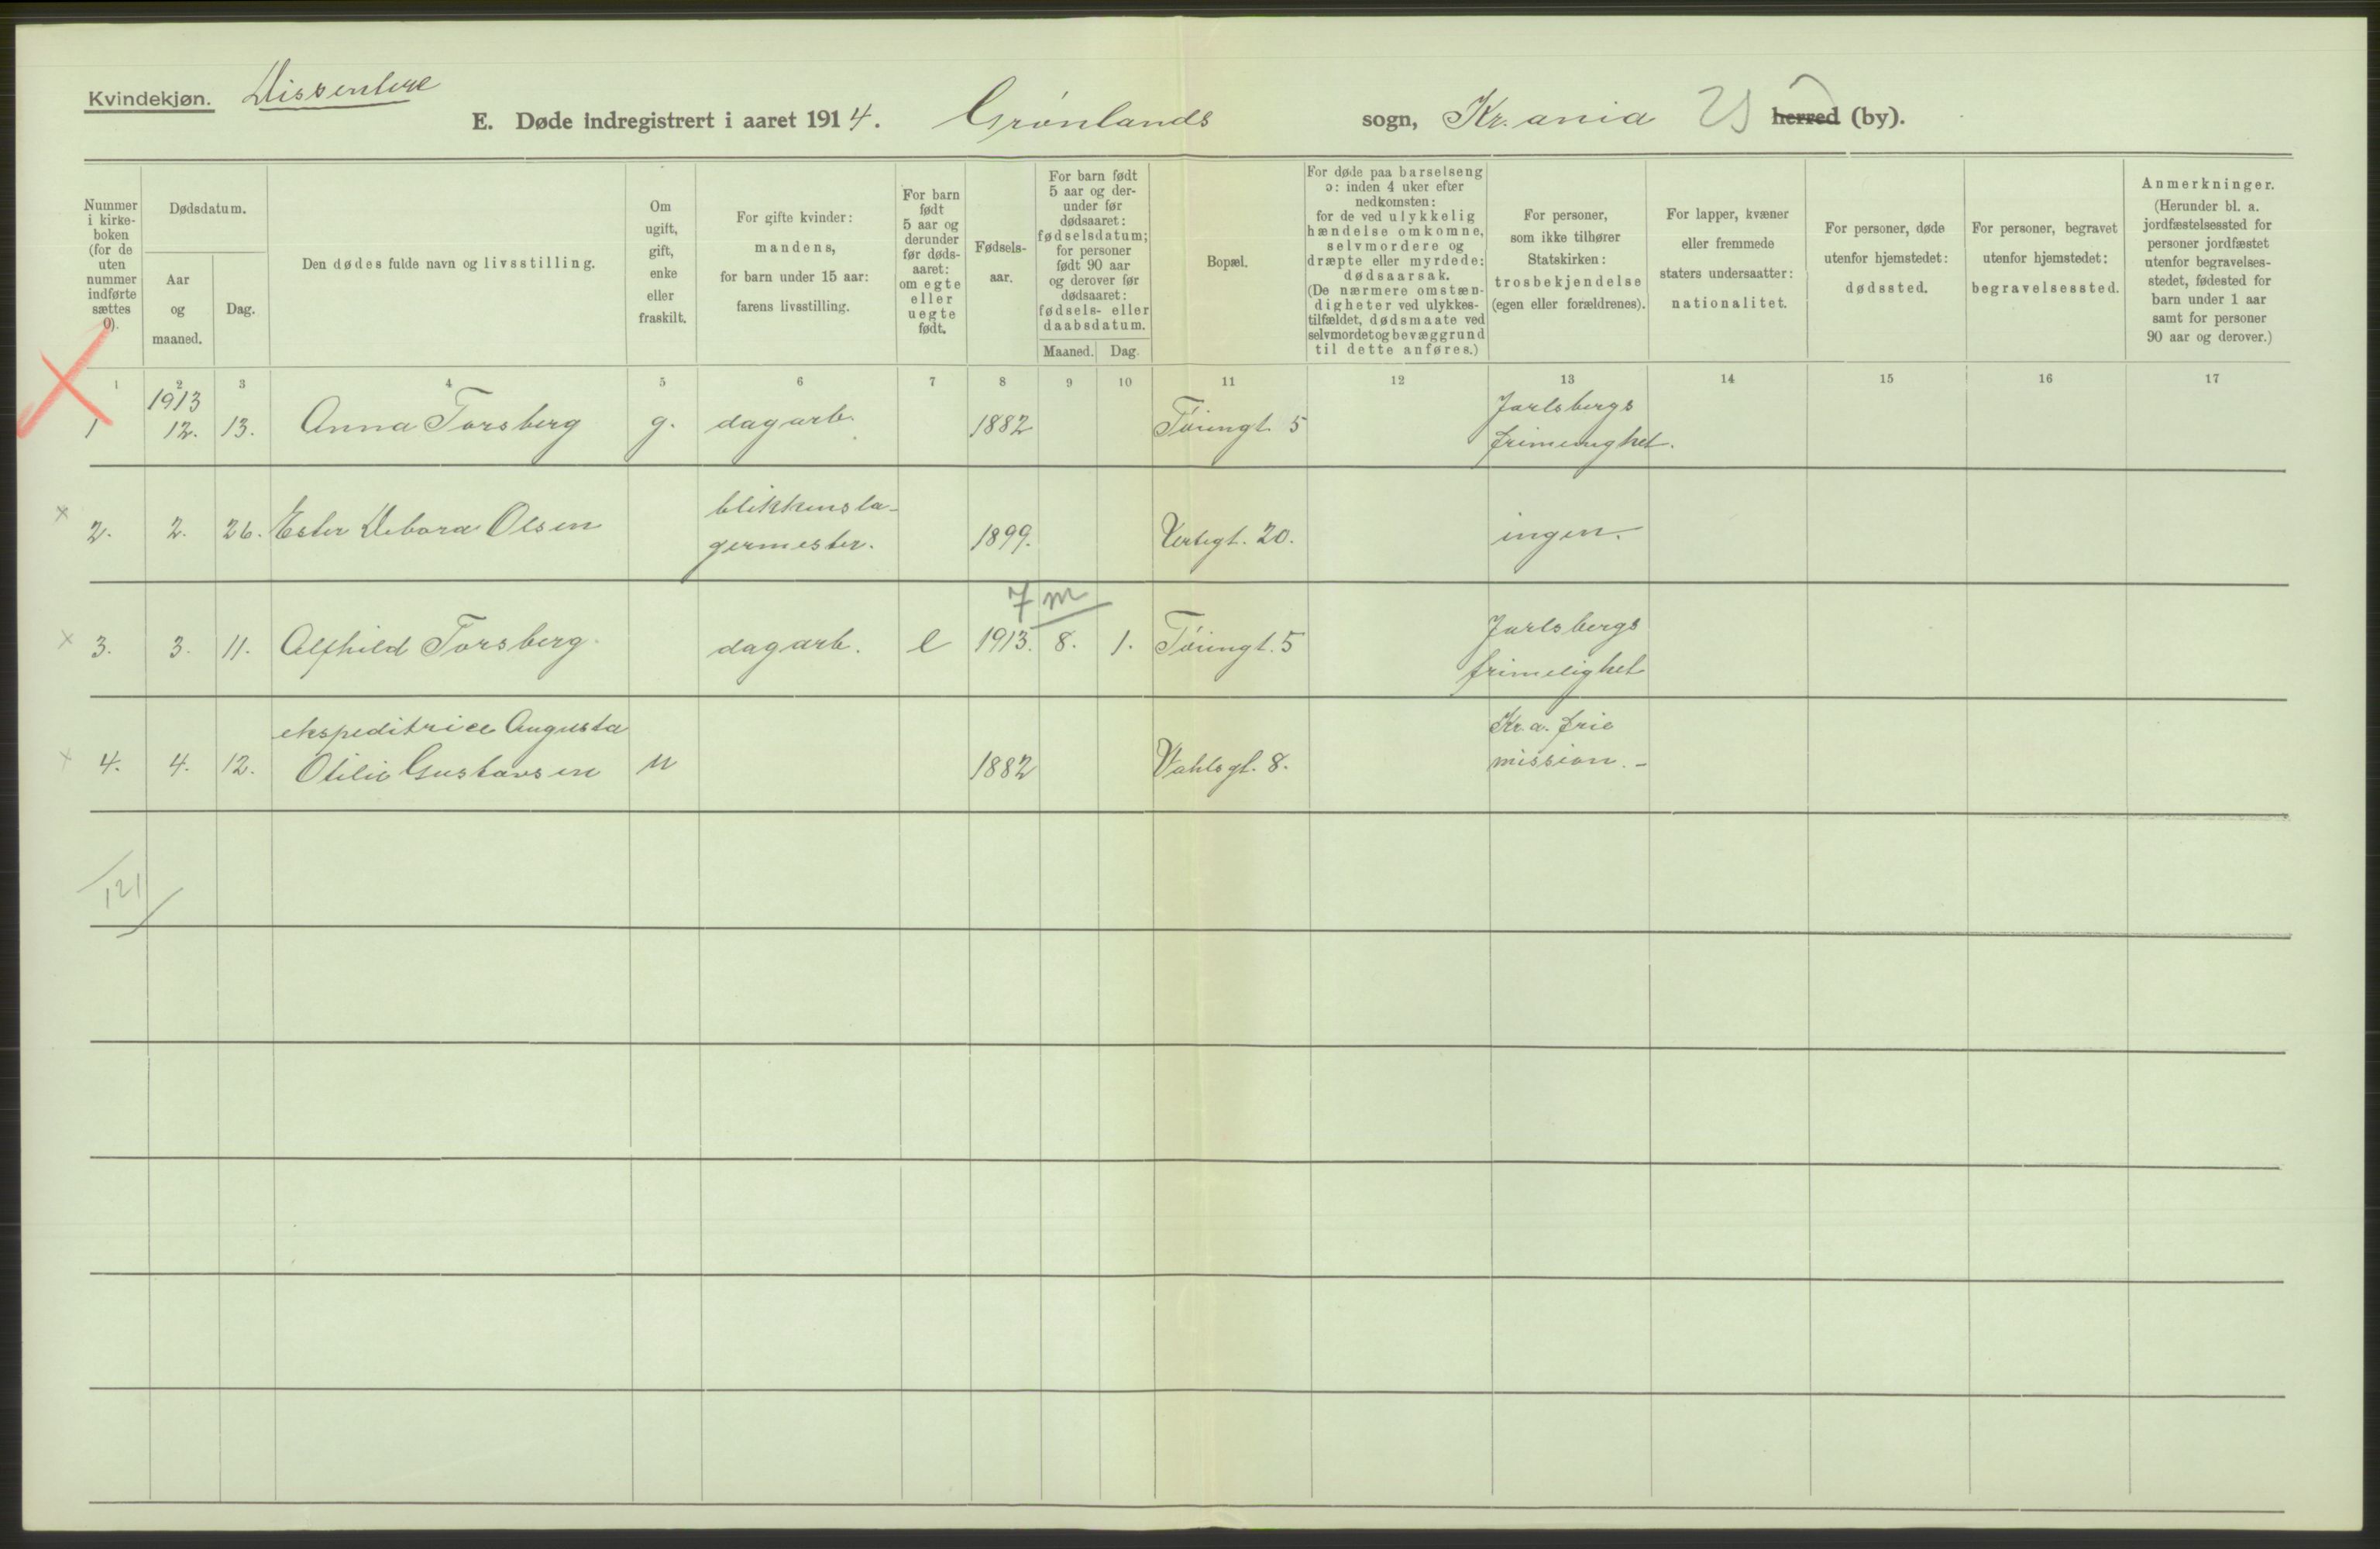 Kvindekjøn. Dissentere
E. Døde indregistrert i aaret 1914. Grønlands sogn, Kr.ania herred (by).
Nummer i kirkeboken (for de uten nummer indførte sættes 0).
Dødsdatum.
Aar og maaned.
Dag.
Den dødes fulde navn og livsstilling.
Om ugift, gift, enke eller fraskilt.
For gifte kvinder: mandens, for barn under 15 aar: farens livsstilling.
For barn født 5 aar og derunder før dødsaaret: om egte eller uegte født.
Fødselsaar.
For barn født 5 aar og derunder før dødsaaret: fødselsdatum; for personer født 90 aar og derover før dødsaaret: fødsels- eller daabsdatum.
Maaned. Dag.
Bopæl.
For døde paa barselseng ɔ: inden 4 uker efter nedkomsten: for de ved ulykkelig hændelse omkomne, selvmordere og dræpte eller myrdede: dødsaarsak. (De nærmere omstændigheter ved ulykkestilfældet, dødsmaate ved selvmordet og bevæggrund til dette anføres.)
For personer, som ikke tilhører Statskirken: trosbekjendelse (egen eller forældrenes).
For lapper, kvæner eller fremmede staters undersaatter: nationalitet.
For personer, døde utenfor hjemstedet: dødssted.
For personer, begravet utenfor hjemstedet: begravelsessted.
Anmerkninger. (Herunder bl. a. jordfæstelsessted for personer jordfæstet utenfor begravelsesstedet, fødested for barn under 1 aar samt for personer 90 aar og derover.)
1 2 3 4 5 6 7 8 9 10 11 12 13 14 15 16 17
1 1913 12. 13. Anna Torsberg g. dagarb. 1882 Tøiengt. 5 Jarlsbergs frimenighet.
2. 2. 26. Ester Debora Olsen blikkenslagermester. 1899. Vertegt. 20. ingen.
7 m
3. 3. 11. Alfhild Torsberg. dagarb. e 1913. 8. 1. Tøiengt. 5 Jarlsbergs frimelighet
4. 4. 12. ekspeditrice Augusta Otilie Gustavsen u 1882 Vahlsgt. 8. Kr.a. frie mission.-
121